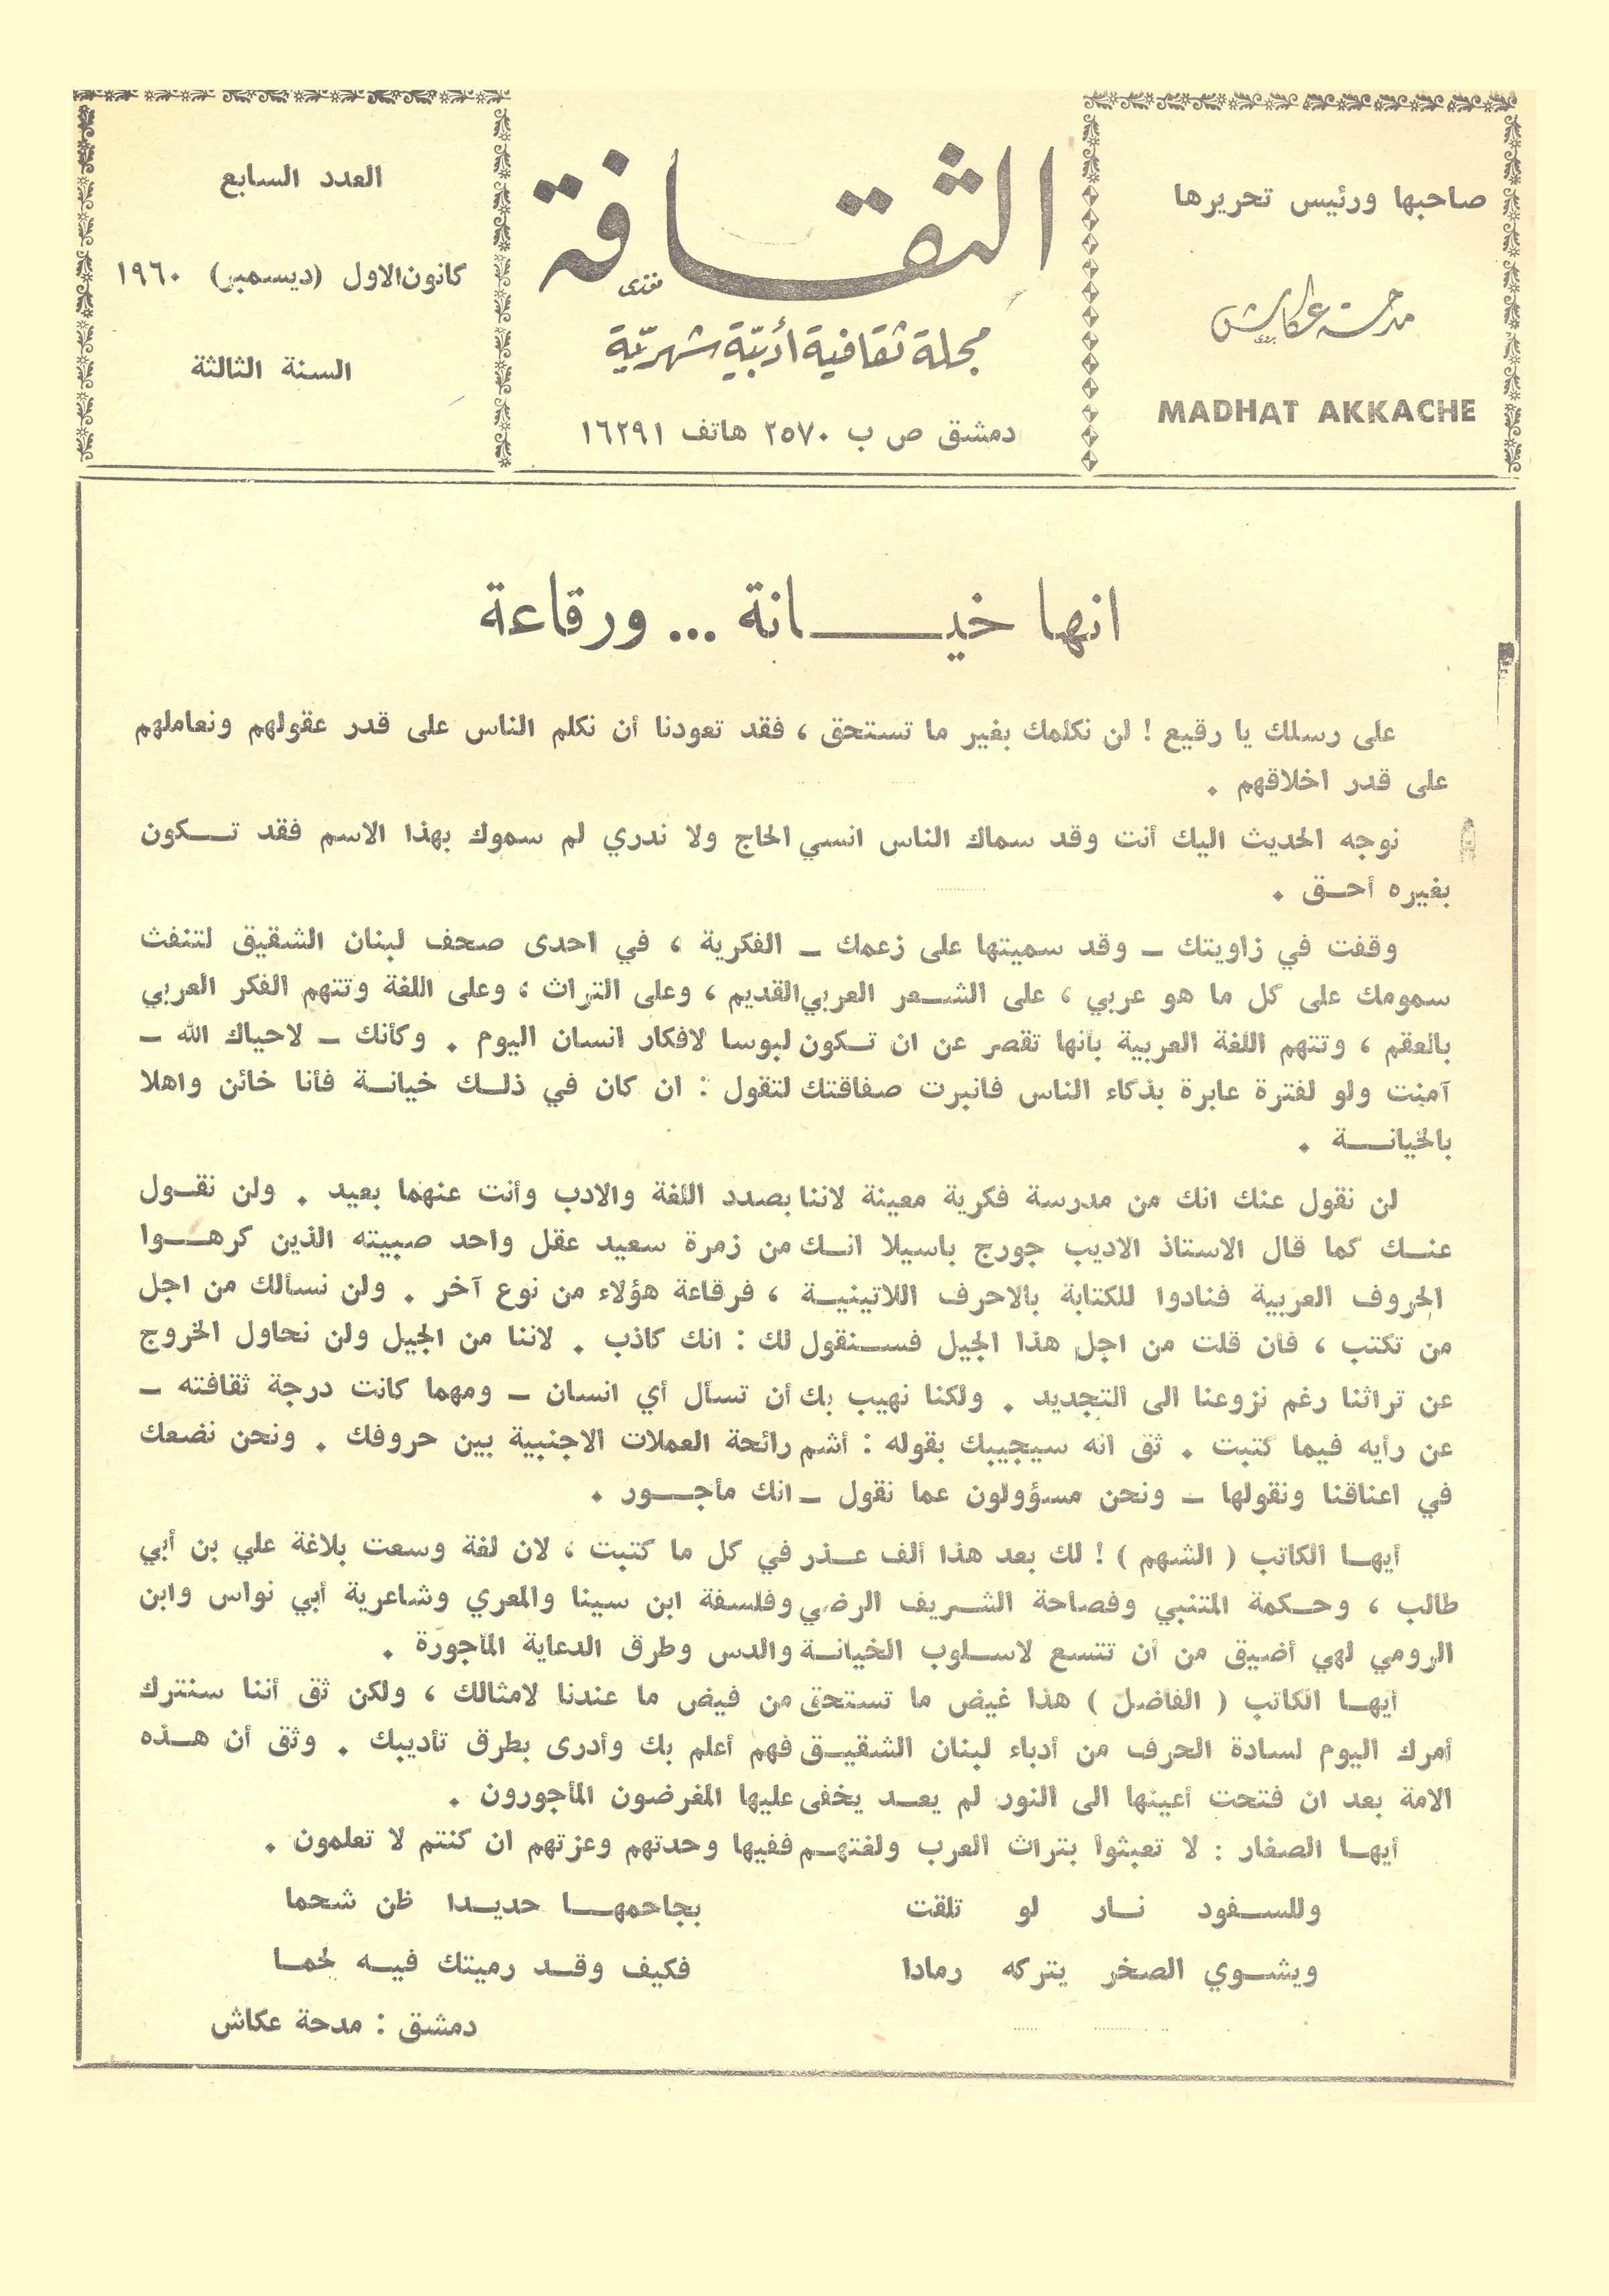 صاحبها ورئيس تحريرها
مدحة عكاش
MADHAT AKKACHE
الثقافة
مجلة ثقافية أدبيّة شهريّة
دمشق ص ب ٢٥٧٠ هاتف ١٦٢٩١
العدد السابع
كانون الاول (ديسمبر) ١٩٦٠
السنة الثالثة
انها خيـــانة ... ورقاعة
على رسلك يا رقيع ! لن نكلمك بغير ما تستحق ، فقد تعودنا أن نكلم الناس على قدر عقولهم ونعاملهم
على قدر اخلاقهم .
نوجه الحديث اليك أنت وقد سماك الناس انسي الحاج ولا ندري لم سموك بهذا الاسم فقد تـــكون
بغيره أحـق .
وقفت في زاويتك ــ وقد سميتها على زعمك ــ الفكرية ، في احدى صحف لبنان الشقيق لتنفث
سمومك على كل ما هو عربي ، على الشـعر العربي القديم ، وعلى التراث ، وعلى اللغة وتتهم الفكر العربي
بالعقم ، وتتهم اللغة العربية بأنها تقصر عن ان تـكون لبوسا لافكار انسان اليوم . وكأنك ــ لاحياك الله ــ
آمنت ولو لفترة عابرة بذكاء الناس فانبرت صفاقتك لتقول : ان كان في ذلـك خيانـة فأنا خائن واهلا
بالخيانـــة .
لن نقول عنك انك من مدرسة فكرية معينة لاننا بصدد اللغة والادب وأنت عنهما بعيد . ولن نقـول
عنـك كما قال الاستاذ الاديب جورج باسيلا انـك من زمرة سعيد عقل واحد صبيته الذين كرهــوا
الحروف العربية فنادوا للكتابة بالاحرف اللاتينيـة ، فرقاعة هؤلاء من نوع آخر . ولن نسألك من اجل
من تكتب ، فأن قلت من اجل هذا الجيل فسـنقول لك : انك كاذب . لاننا من الجيل ولن نحاول الخروج
عن تراثنا رغم نزوعنا الى التجديد . ولكنا نهيب بك أن تسأل أي انسان ــ ومهما كانت درجة ثقافته ــ
عن رأيه فيما كتبت . ثق انه سيجيبك بقوله : أشم رائحة العملات الاجنبية بين حروفك . ونحن نضعك
في اعناقنا ونقولها ــ ونحن مسؤولون عما نقول ــ انك مأجــور .
أيهـا الكاتب ( الشهم ) ! لك بعد هذا ألف عـذر في كل ما كتبت ، لان لغة وسعت بلاغة علي بن أبي
طالب ، وحـكمة المتنبي وفصاحة الشـريف الرضي وفلسفة ابن سينا والمعري وشاعرية أبي نواس وابن
الرومي لهي أضيق من أن تتسع لاسـلوب الخيانـة والدس وطرق الدعاية المأجورة .
أيهـا الكاتب ( الفاضل ) هذا غيض ما تستحق من فيض ما عندنا لامثالك ، ولكن ثق أننا سنترك
أمرك اليوم لسادة الحرف من أدباء لبنان الشقيـق فهم أعلم بك وأدرى بطرق تأديبك . وثق أن هـذه
الامة بعد ان فتحت أعينها الى النور لم يعـد يخفى عليها المغرضون المأجورون .
أيهـا الصغار : لا تعبثوا بتراث العرب ولغتهـم ففيها وحدتهم وعزتهم ان كنتم لا تعلمون .
وللسـفود نـار لو تلقت بجاحمهـا حديـدا ظن شحما
ويشـوي الصخر يتركه رمادا فكيف وقـد رميتك فيـه لحمـا
دمشق : مدحة عكاش